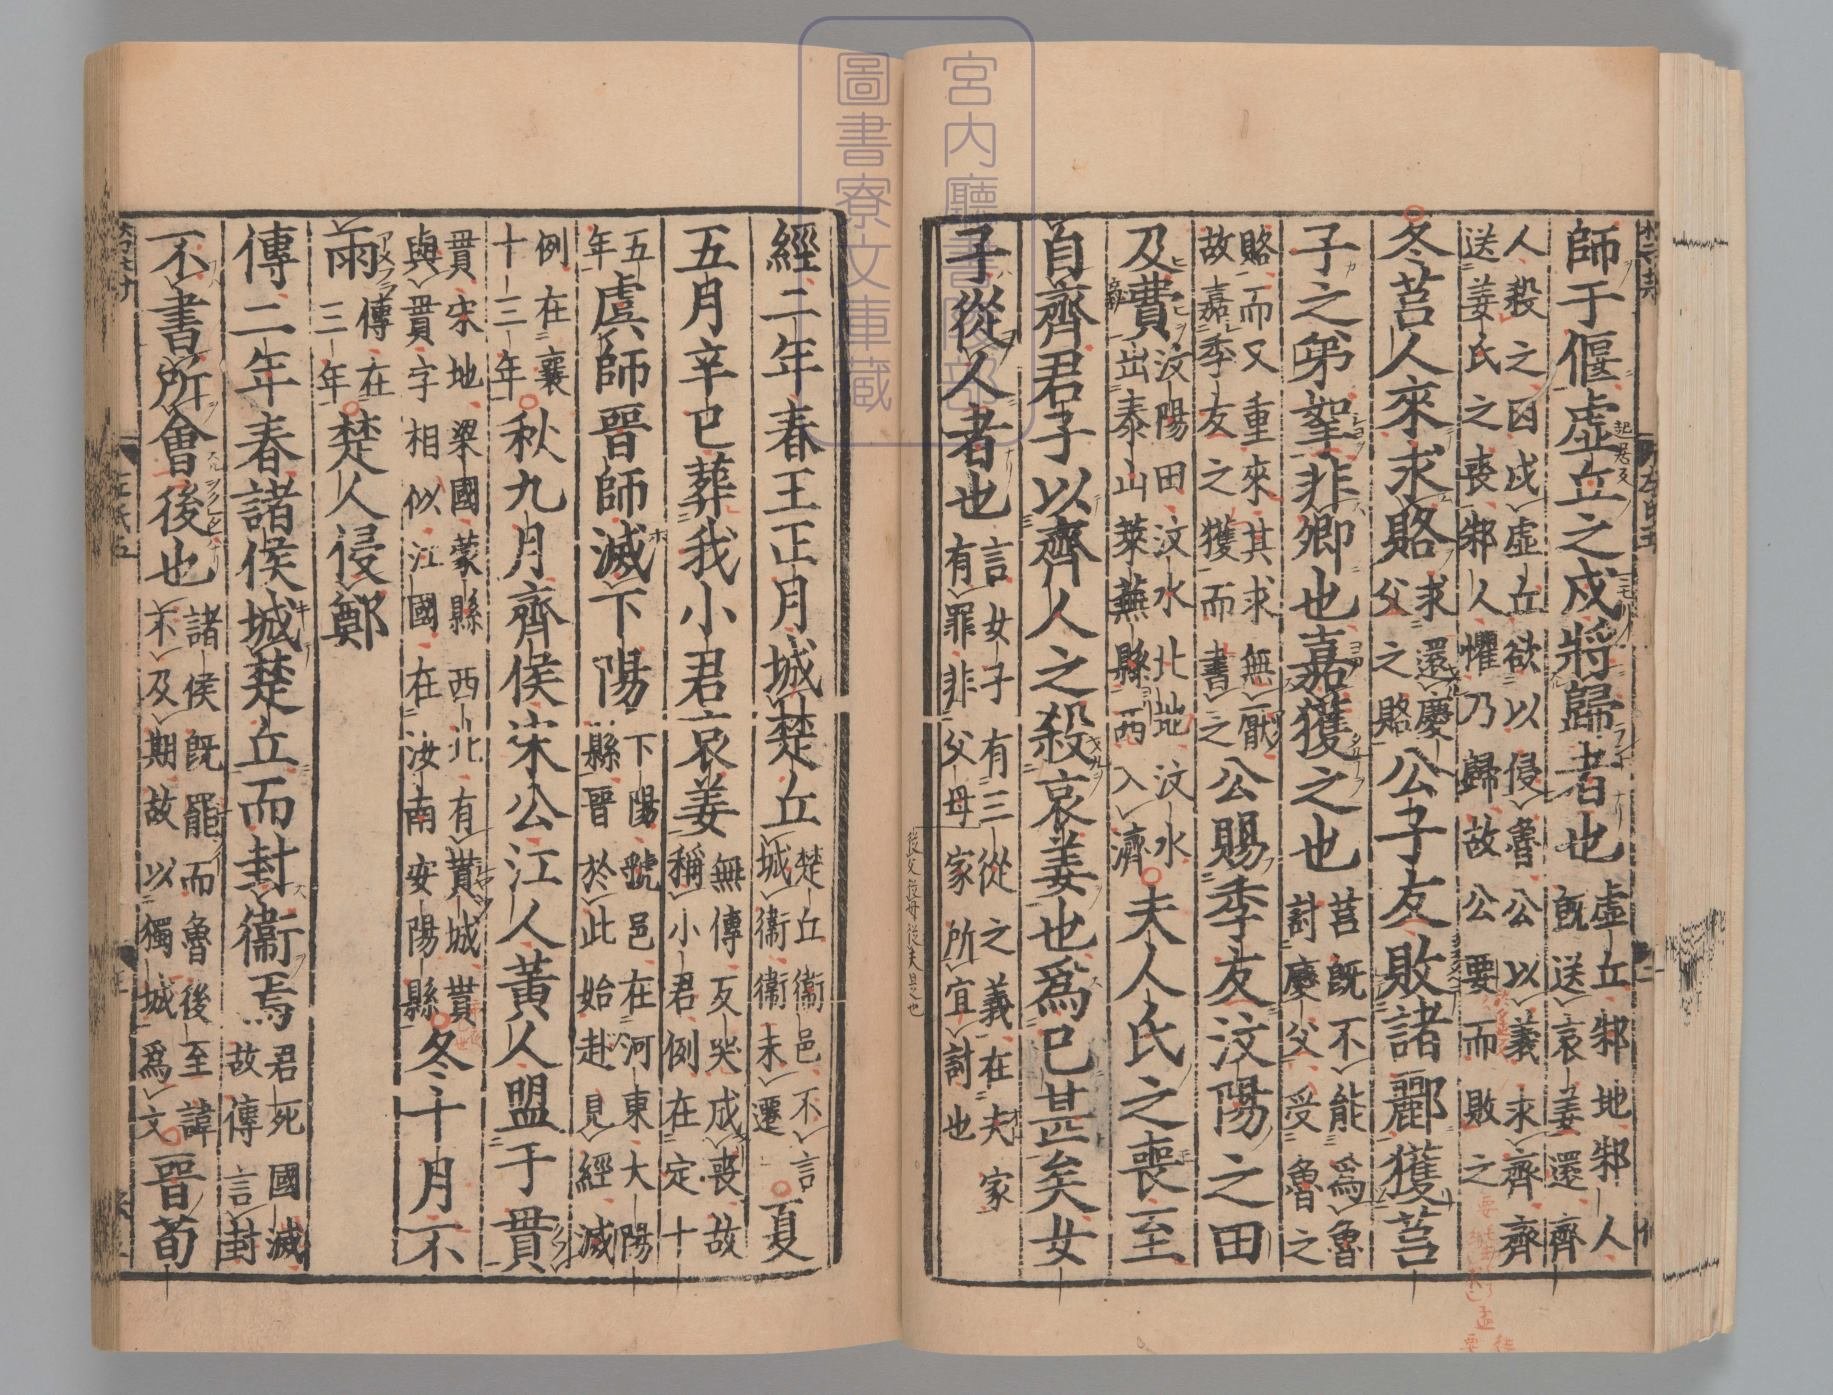 師于偃虛丘之戍將歸者也虛丘邾地邾人既送哀姜還齊
人殺之因戍虛丘欲以侵魯公以義求齊齊送姜氏之喪邾人懼乃歸故公要而敗之
冬莒人來求賂求還慶父之賂公子友敗諸酈獲莒
子之弟挐非卿也嘉獲之也莒既不能為魯討慶父受魯之
賂而又重來其求無厭故嘉季友之獲而書之公賜季友汶陽之田
及費汶陽田汶水北地汶水出泰山萊蕪縣西入濟夫人氏之喪至
自齊君子以齊人之殺哀姜也為已甚矣女
子從人者也言女子有三從之義在夫家有罪非父母家所宜討也
從父從母從夫是也
經二年春王正月城楚丘楚丘衞邑不言城衞衞未遷夏
五月辛巳葬我小君哀姜無傳反哭成喪故稱小君例在定十
五年虞師晉師滅下陽下陽虢邑在河東大陽縣晉於此始赴見經滅
例在襄十三年秋九月齊侯宋公江人黃人盟于貫
貫宋地梁國蒙縣西北有貰城貰與貫字相似江國在汝南安陽縣冬十月不
雨傳在三年楚人侵鄭
傳二年春諸侯城楚丘而封衞焉君死國滅故傳言封
不書所會後也諸侯既罷而魯後至諱不及期故以獨城為文晉荀
宮内廳書陵部
圖書寮文庫藏